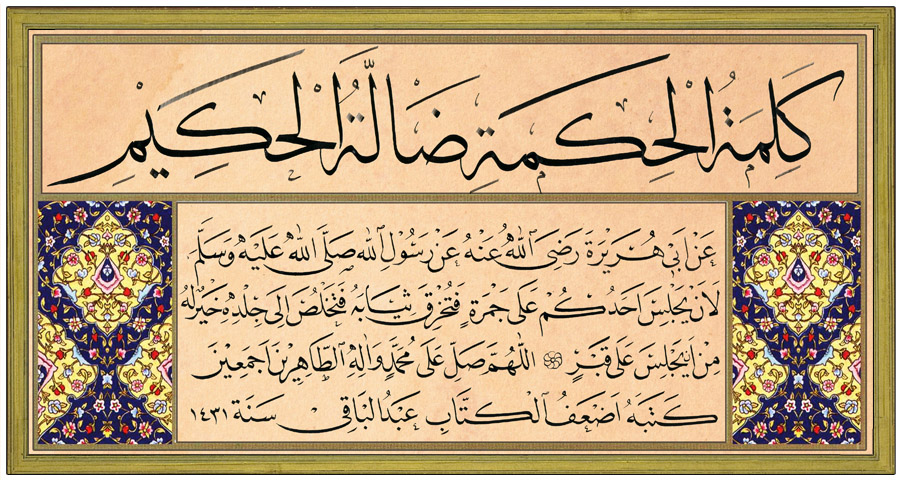 كَلِمَةُ الْحِكمَةِ ضَالَّةُ الْحَكِيْمِ
عَنْ اَبِي هُرَيْرَةَ رَضِيَ اللّٰهُ عَنْهُ عَنْ رَسُوْلِ اللّٰهِ صَلَّى اللّٰهُ عَلَيْهِ وَسَلَّمَ
لَانْ يَجْلِسَ اَحَدُكُمْ عَلَى جَمْرَةٍ فَتُحْرِقَ ثِيَابَهُ فَتَخْلُصَ اِلَى جِلْدِهِ خَيْرٌ لَهُ
مِنْ اَنْ يَجْلِسَ عَلَى قَبْرٍ اَللّٰهُمَّ صَلِّ عَلَى مُحَمَّدٍ وَاٰلِهِ الطَّاهِرِيْنَ اَجْمَعِيْنَ
كَتَبَهُ اَضْعَفُ الْكُتَّابِ عَبْدُ الْبَاقِي سَنَة ١٤٣١